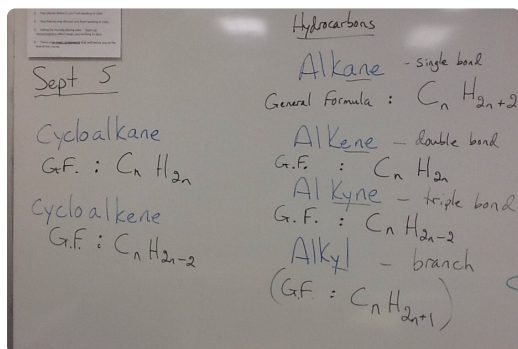 Sept 5
Cycloalkane
G.F. : CₙH₂ₙ
Cycloalkene
G.F : CₙH₂ₙ₋₂
Hydrocarbons
Alkane - single bond
General Formula : CₙH₂ₙ₊₂
Alkene - double bond
G.F. : CₙH₂ₙ
Alkyne - triple bond
G.F. : CₙH₂ₙ₋₂
Alkyl - branch
(G.F. : CₙH₂ₙ₊₁)